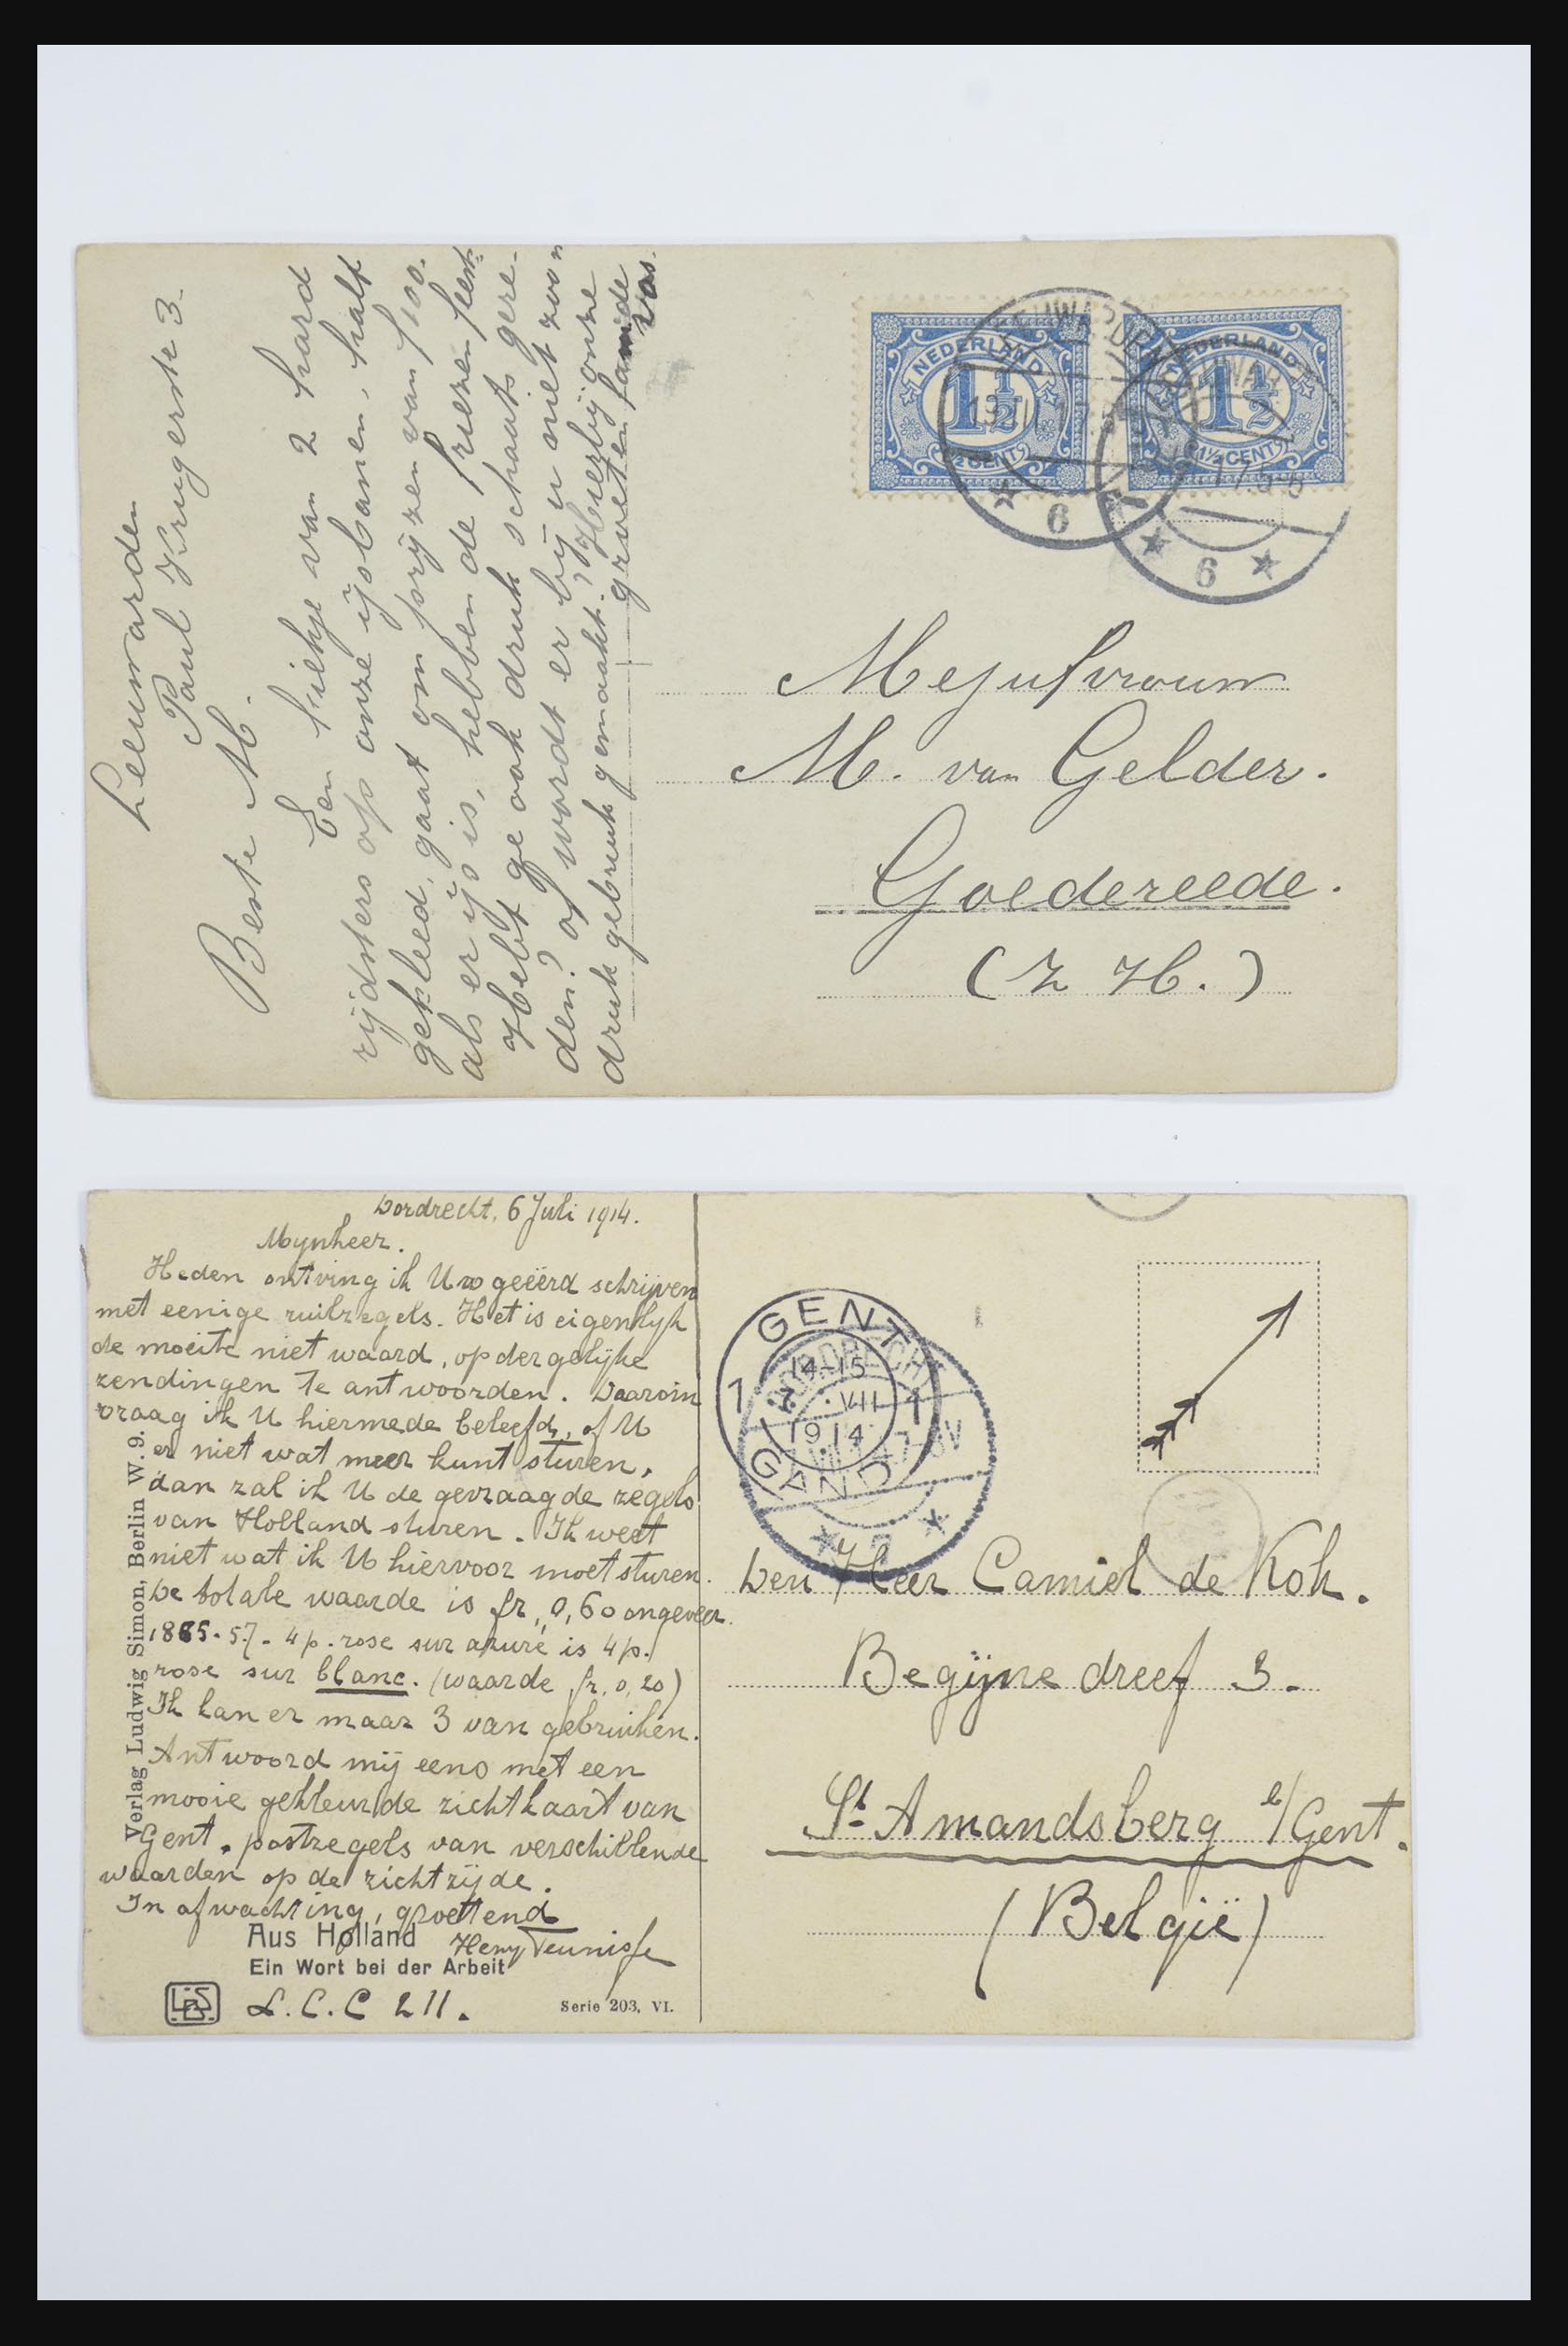 Leeuwarden
Paul Krugerstr 3.
Beste M.
Een kiekje van 2 hard
rijdsters op onze ijsbanen, half
gekleed, gaat om prijzen van f100.
als er ijs is, hebben de friezen feest.
Hebt ge ook druk schaats gere-
den? of wordt er bij u niet zoo'n
druk gebruik gemaakt? Hierbij onze
groeten
NEDERLAND
1½
½ CENT
NEDERLAND
1½
1½ CENT
LEEUWARDEN
6
6
Mejufvrouw
M. van Gelder.
Goedereede.
(Z H.)
Dordrecht, 6 Juli 1914.
Mynheer.
Heden ontving ik Uw geëerd schrijven
met eenige ruilzegels. Het is eigenlyk
de moeite niet waard, op dergelijke
zendingen te antwoorden. Daarom
vraag ik U hiermede beleefd, of U
er niet wat meer kunt sturen,
dan zal ik U de gevraagde zegels
van Holland sturen. Ik weet
niet wat ik U hiervoor moet sturen.
De totale waarde is fr, 0,60 ongeveer.
1865-57- 4p. rose sur azuré is 4p.
rose sur blanc. (waarde fr. 0,20)
Ik kan er maar 3 van gebruiken.
Antwoord mij eens met een
mooie gekleurde zichtkaart van
Gent. postzegels van verschillende
waarden op de zichtzijde.
In afwachting, groettend
Henry Teunisse
L.C.C 211.
Aus Holland
Ein Wort bei der Arbeit
Serie 203, VI.
Verlag Ludwig Simon, Berlin W. 9.
GENT
14-15
1 7. VII 1
1914
GAND
DORDRECHT
Den Heer Camiel de Kok.
Begijne dreef 3.
St. Amandsberg b/Gent.
(België)